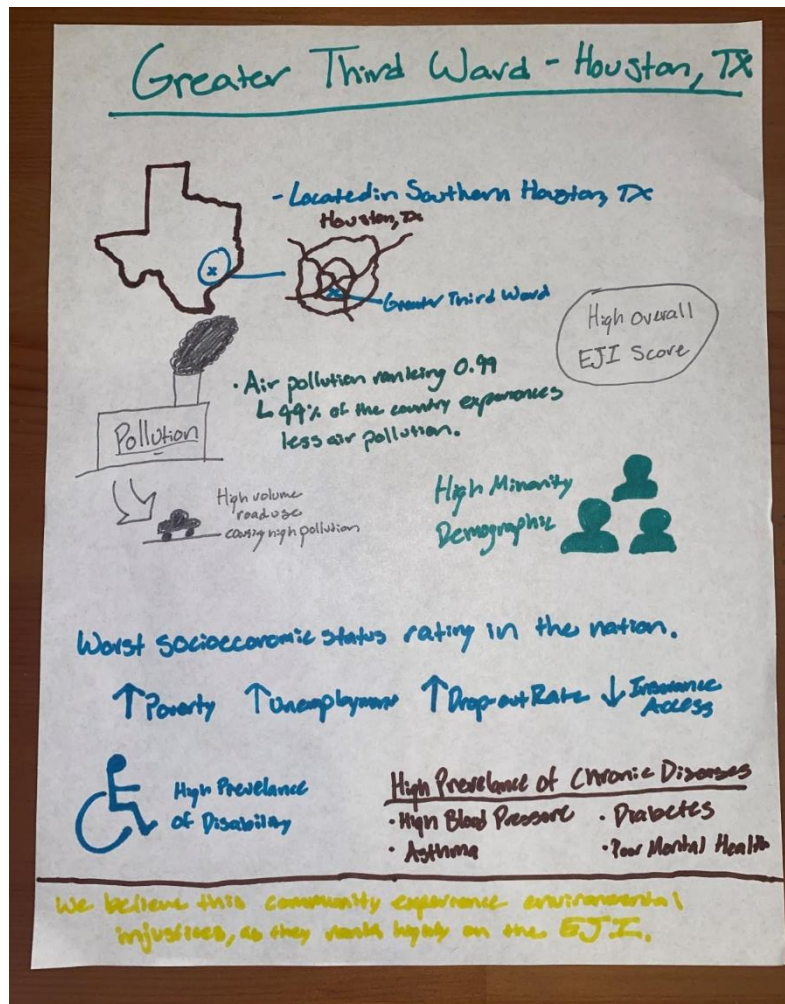 Greater Third Ward - Houston, TX
- Located in Southern Houston, TX
Houston, TX
x
x
Greater Third Ward
High Overall
EJI Score
· Air pollution ranking 0.99
↳ 99% of the country experiences
less air pollution.
Pollution
High volume
road use
causing high pollution
High Minority
Demographic
Worst socioeconomic status rating in the nation.
↑ Poverty ↑ Unemployment ↑ Drop-out Rate ↓ Insurance
Access
High Prevelance
of Disability
High Prevelance of Chronic Diseases
· High Blood Pressure · Diabetes
· Asthma · Poor Mental Health
We believe this community experience environmental
injustices, as they rank highly on the EJI.